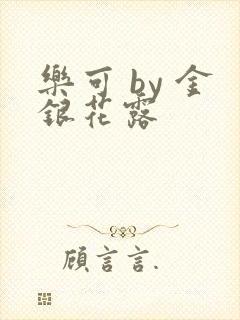 樂可 by 金
銀花露
顧言言.